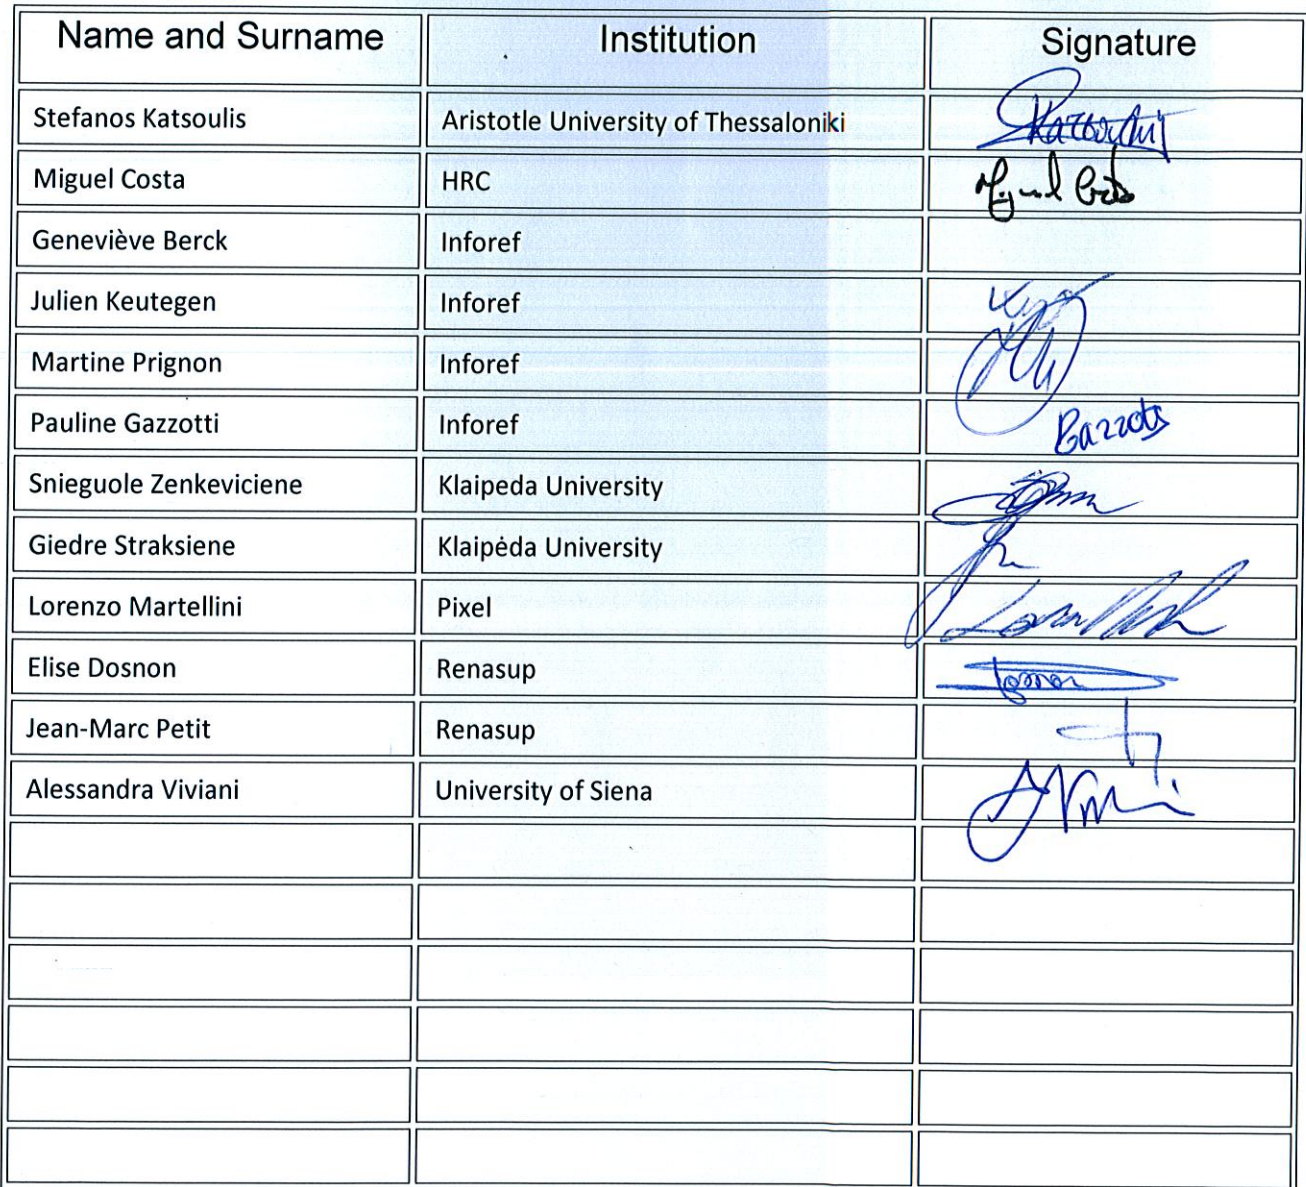 Name and Surname Institution Signature
Stefanos Katsoulis Aristotle University of Thessaloniki
Miguel Costa HRC Miguel Costa
Geneviève Berck Inforef
Julien Keutegen Inforef
Martine Prignon Inforef
Pauline Gazzotti Inforef Gazzotti
Snieguole Zenkeviciene Klaipeda University
Giedre Straksiene Klaipėda University
Lorenzo Martellini Pixel
Elise Dosnon Renasup
Jean-Marc Petit Renasup
Alessandra Viviani University of Siena